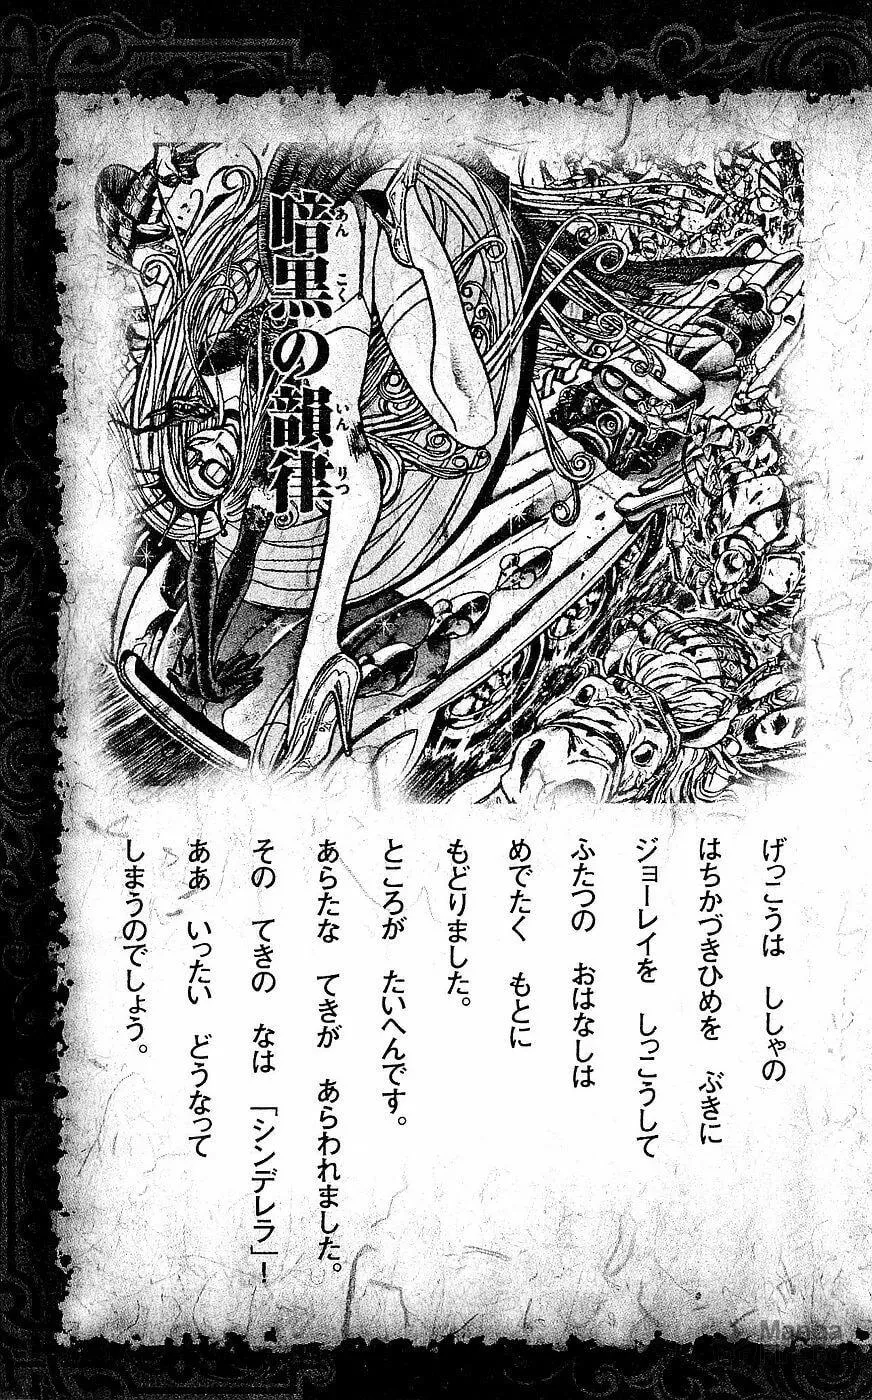 暗黒の韻律
あんこくいんりつ
げっこうは ししゃの
はちかづきひめを ぶきに
ジョーレイを しっこうして
ふたつの おはなしは
めでたく もとに
もどりました。
ところが たいへんです。
あらたな てきが あらわれました。
その てきの なは 「シンデレラ」！
ああ いったい どうなって
しまうのでしょう。